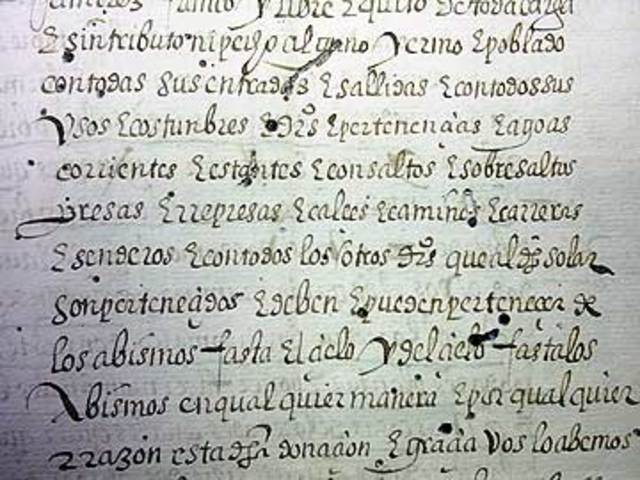 y libre E quito de toda carga
E sin tributo ni pecho alguno yermo E poblado
con todas sus entradas E sallidas E con todos sus
Vsos E costunbres E drõs E pertenençias E agoas
corrientes E estantes E con saltos E sobresaltos
presas E rrepresas E calçes E caminos E carreras
E senderos E con todos los otros drõs que al dho solar
son perteneçidos E deben E pueden perteneçer de
los abismos fasta El çielo y del çielo fasta los
Abismos en qual quier manera E por qual quier
rrazon esta dha donaçion E graçia Vos lo abemos